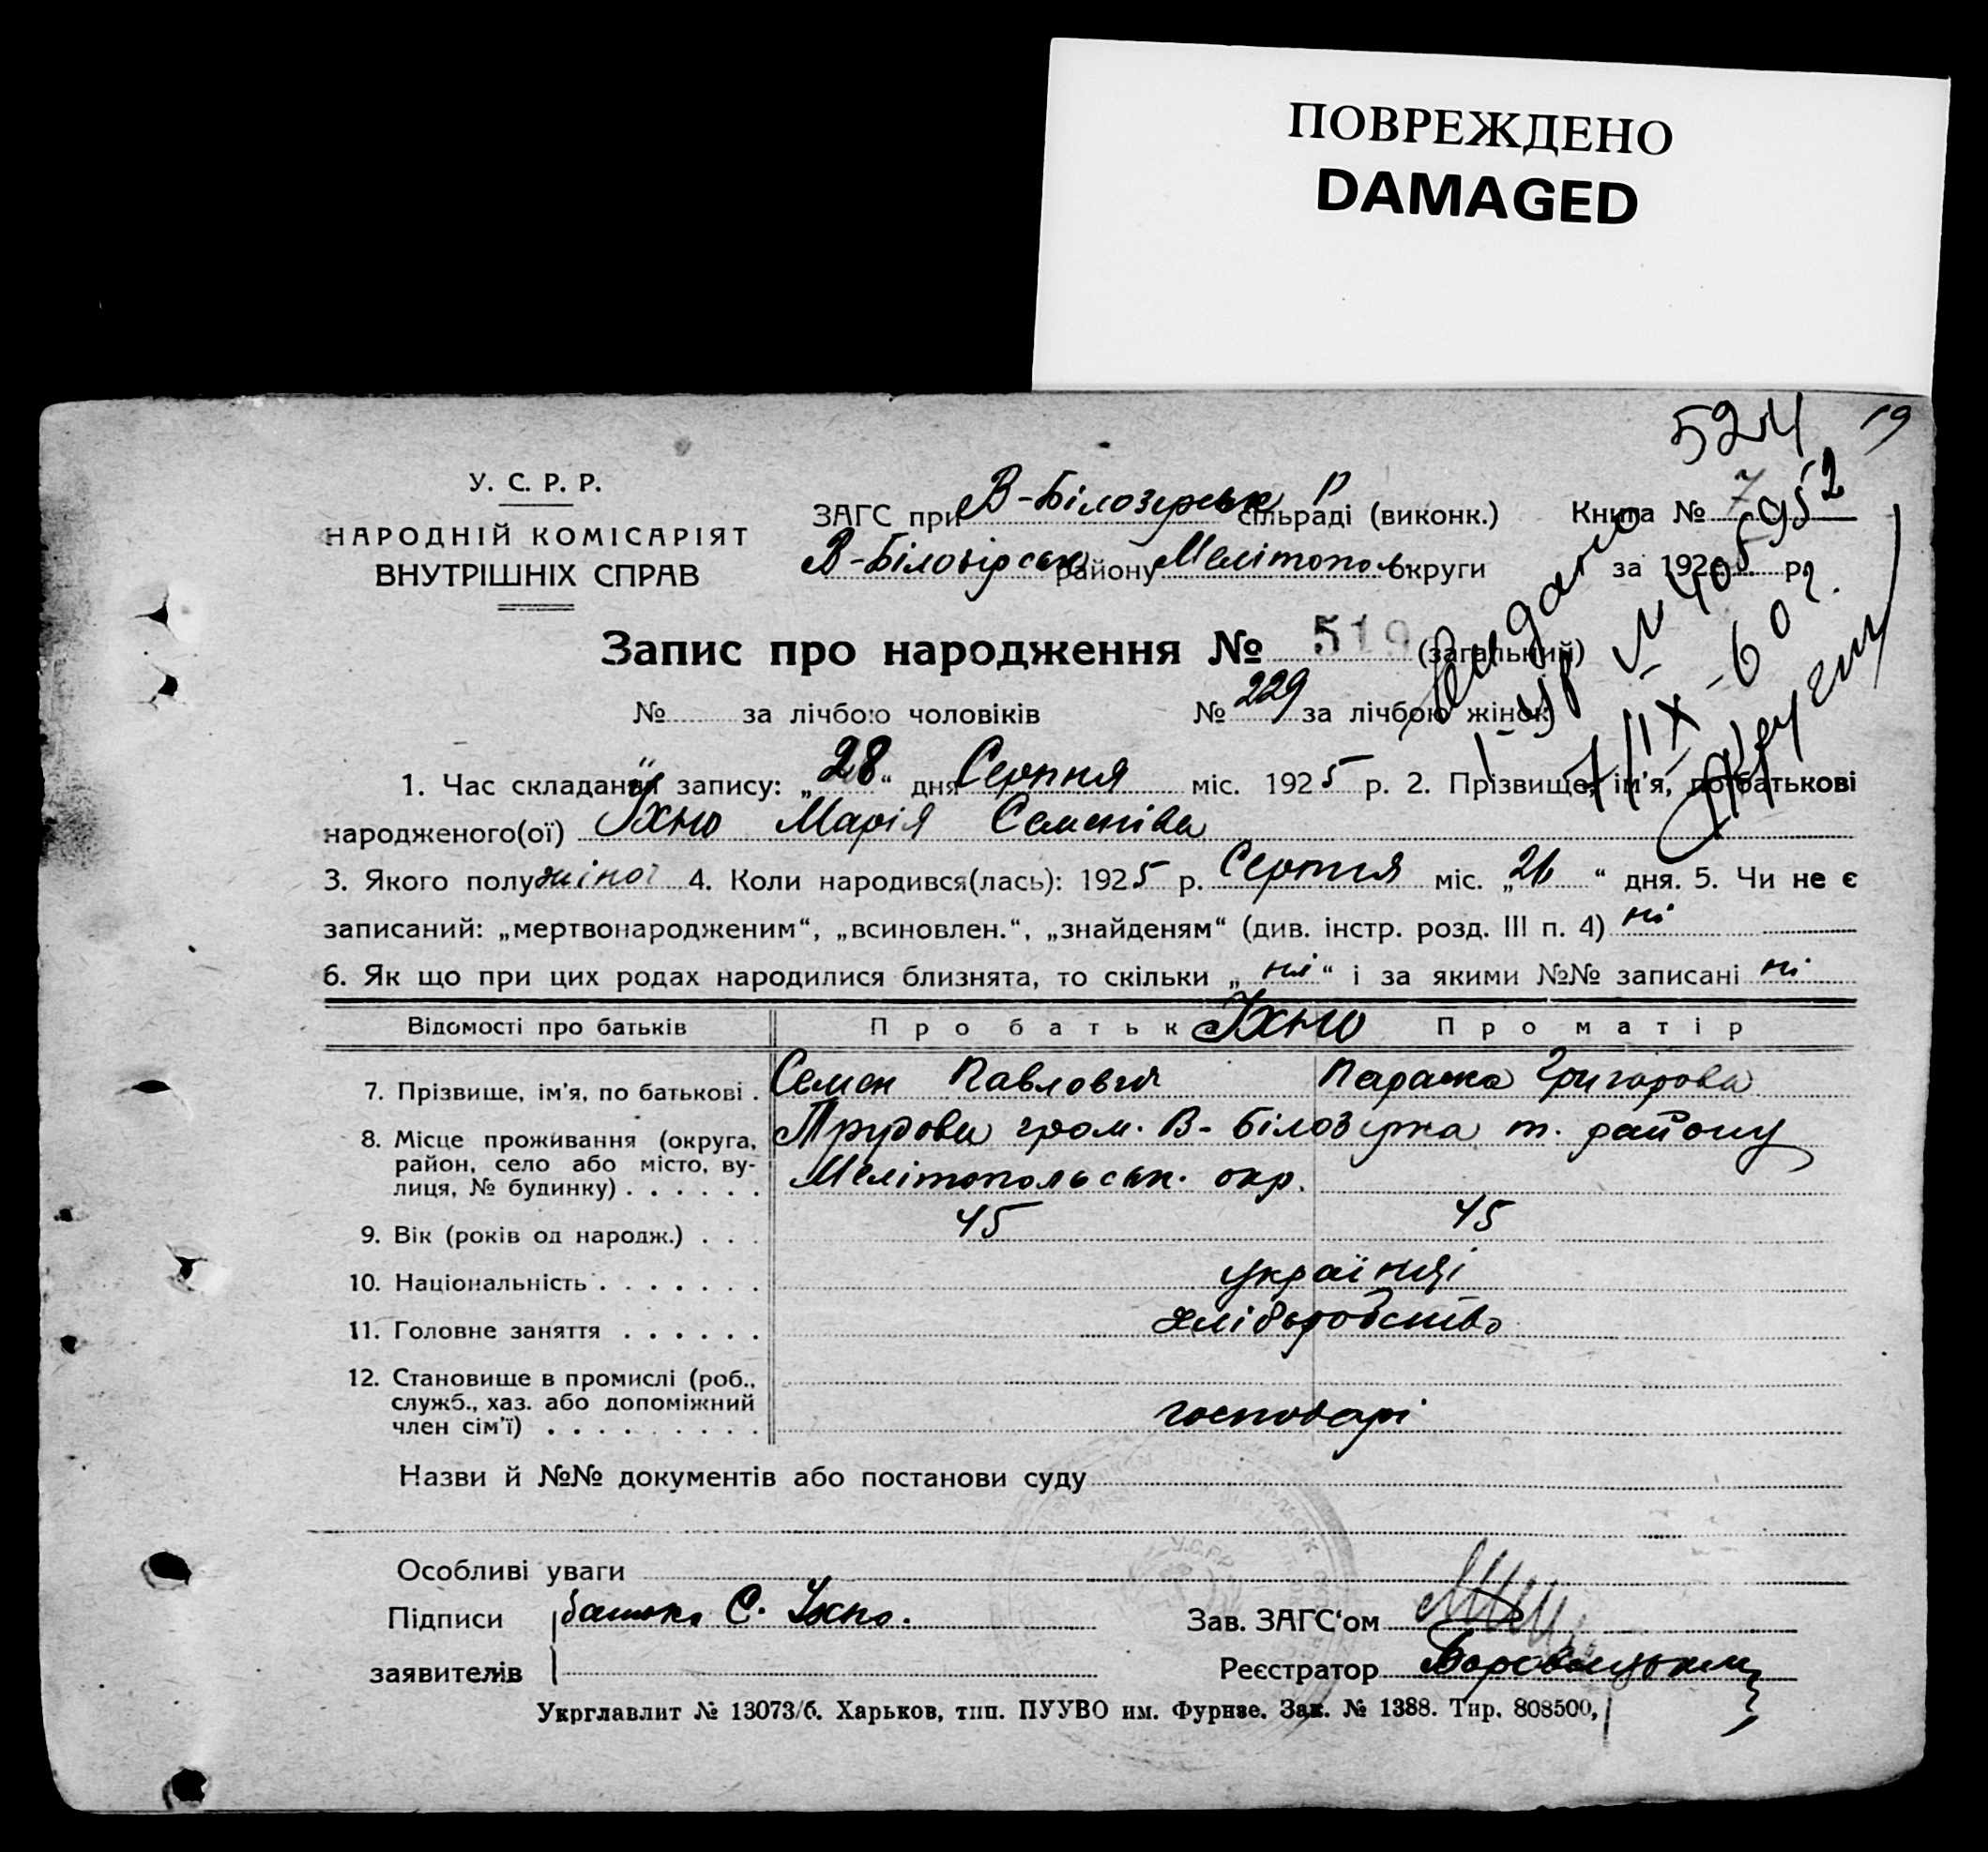 ПОВРЕЖДЕНО
DAMAGED
524 19
У. С. Р. Р.
НАРОДНІЙ КОМІСАРІЯТ
ВНУТРІШНІХ СПРАВ
ЗАГС при В-Білозерськ Р сільраді (виконк.) Книга № 7
В-Білозірськ району Мелітопол округи за 1925 р.
Видано
№ 405952
7/IX-60 г.
Запис про народження № 519 (загальний)
№ за лічбою чоловіків № 229 за лічбою жінок
1. Час складання запису: „28“ дня Серпня міс. 1925 р. 2. Прізвище, ім'я, по батькові
народженого(ої) Їхно Марія Семенівна
3. Якого полу жіної 4. Коли народився(лась): 1925 р. Серпня міс. „26“ дня. 5. Чи не є
записаний: „мертвонародженим“, „всиновлен.“, „знайденям“ (див. інстр. розд. III п. 4) ні
6. Як що при цих родах народилися близнята, то скільки „ні“ і за якими №№ записані ні
Відомості про батьків Про батьк Їхно Про матір
7. Прізвище, ім'я, по батькові . Семен Павлович Параска Григорова
8. Місце проживання (округа, Трудова гром. В-Білозірка т. району
район, село або місто, ву- Мелітопольськ. окр.
лиця, № будинку) . . . . . .
9. Вік (років од народж.) . . . 45 45
10. Національність . . . . . . . українці
11. Головне заняття . . . . . . хліборобство
12. Становище в промислі (роб.,
служб., хаз. або допоміжний
член сім'ї) . . . . . . . . . господарі
Назви й №№ документів або постанови суду
Особливі уваги
Підписи батько С. Їхно. Зав. ЗАГС'ом
заявителів Реєстратор
Укрглавлит № 13073/б. Харьков, тип. ПУУВО им. Фурнзе. Зак. № 1388. Тир. 808500,